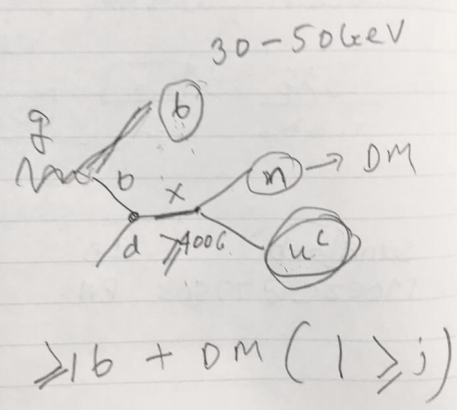 30-50GeV
g
b
b
x
n → DM
d
≥400G
u^c
≥1b + DM (1 ≥ j)